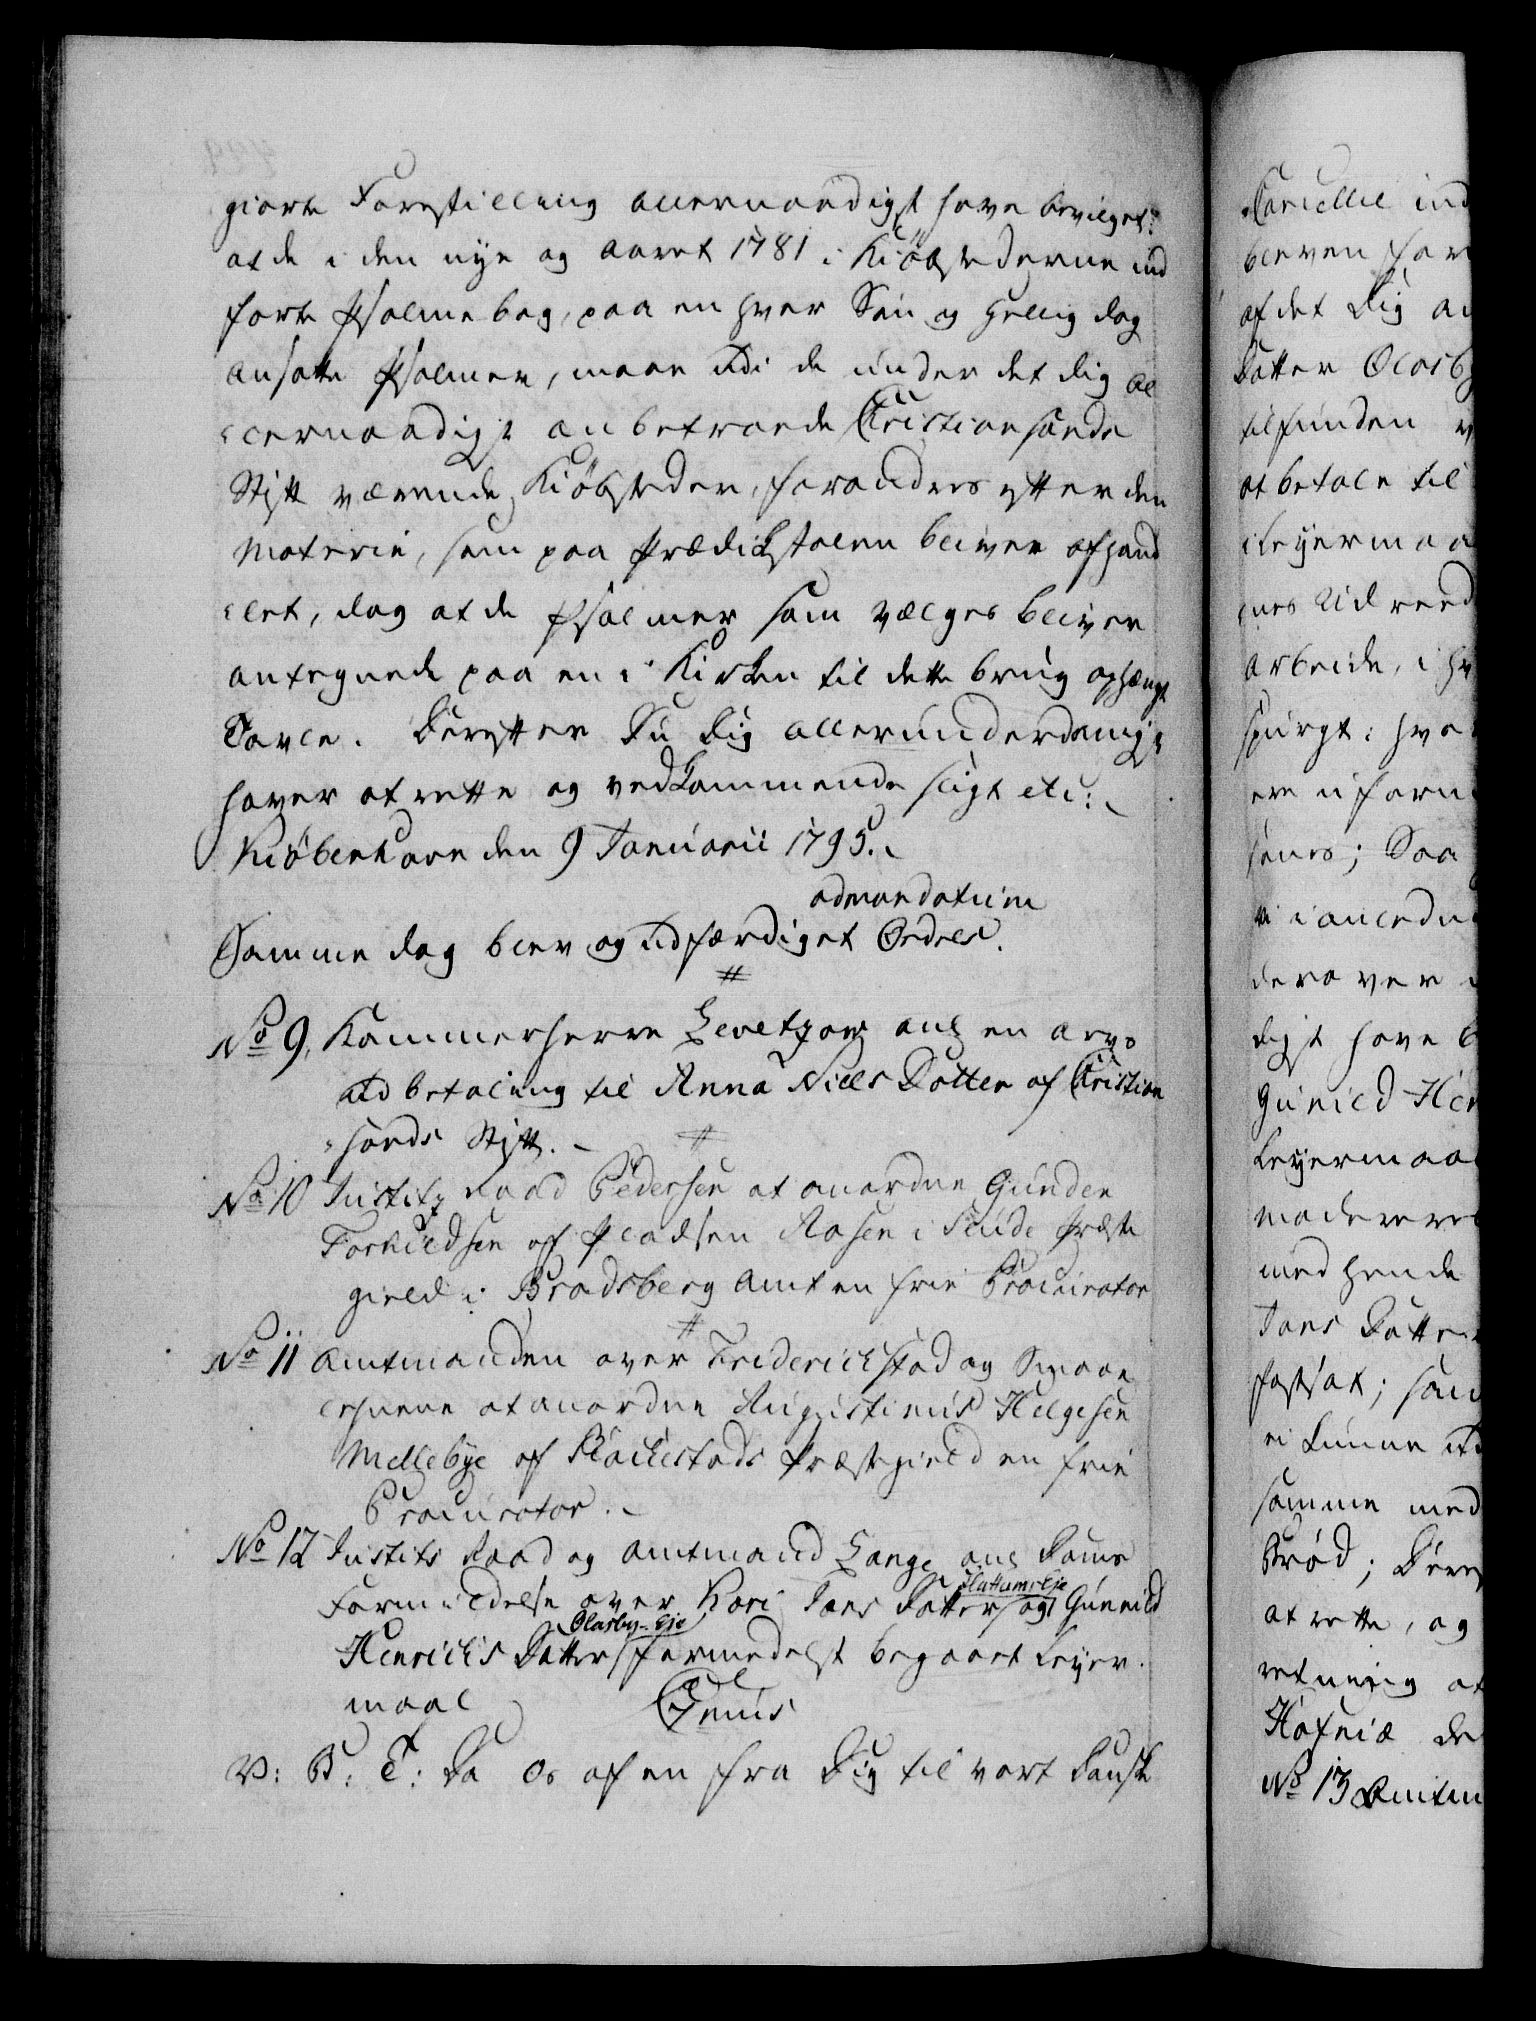 giorte Forestilling allernaadigst have bevilget:
at de i den nye og aaret 1781 i Kiøbstederne ind
førte Psalmebog, paa en hver Søn og Hellig dag
ansatte Psalmer, maae udi de under det dig al
lernaadigst anbetroede Christiansands
Stift værende Kiøbsteder, forandres efter den
Materie, som paa Prædikstolen bliver afhand
let, dog at de Psalmer som vælges bliver
antegnede paa en i Kirken til dette brug ophængt
Tavle. Derefter Du Dig allerunderdanigst
haver at rette og vedkommende sligt etc:
Kiöbenhavn den 9 Januarii 1795.
admandatum
Samme dag blev og udfærdiget Ordre.
No 9, Kammerherre Levetzow ang en arvs
udbetaling til Anna Niels Datter af Christian
sands Stift.
No 10 Justitz Raad Pedersen at anordne Gunder
Torkildsen af Pladsen Aasen i Siude Præste
gield i Bradsberg Amt en frie Procurator
No 11 Amtmanden over Friderichstad og Smaae
lehnene at anordne Augustinus Helgesen
Mellebye af Rackestads Præstegield en frie
Procurator.
No 12 Justits Raad og Amtmand Lange ang Doms
Formildelse over Kari Jans Datter Hattums Eje og Gunnild
Henrichs Datter Olasby-Eje formedelst begaaet Leyer
maal
Genus
V: B: T: Da Os af en fra Dig til vort Danske
Cancellie ind
bleven for
af det Dig an
Datter Olasby
tilfunden
at betale til
Leyermaa
nes Udreed
arbeide, i
spurgt: hvo
ere uform
denes; Saa
vi i anledn
derover
digst have b
Gunild Hen
Leyermaa
moderere
med hende
Jans Datter
fastsat; saa
ei kunne
samme med
Brød; Deref
at rette, og
retning at
Hafniæ de
No 13 Amtm